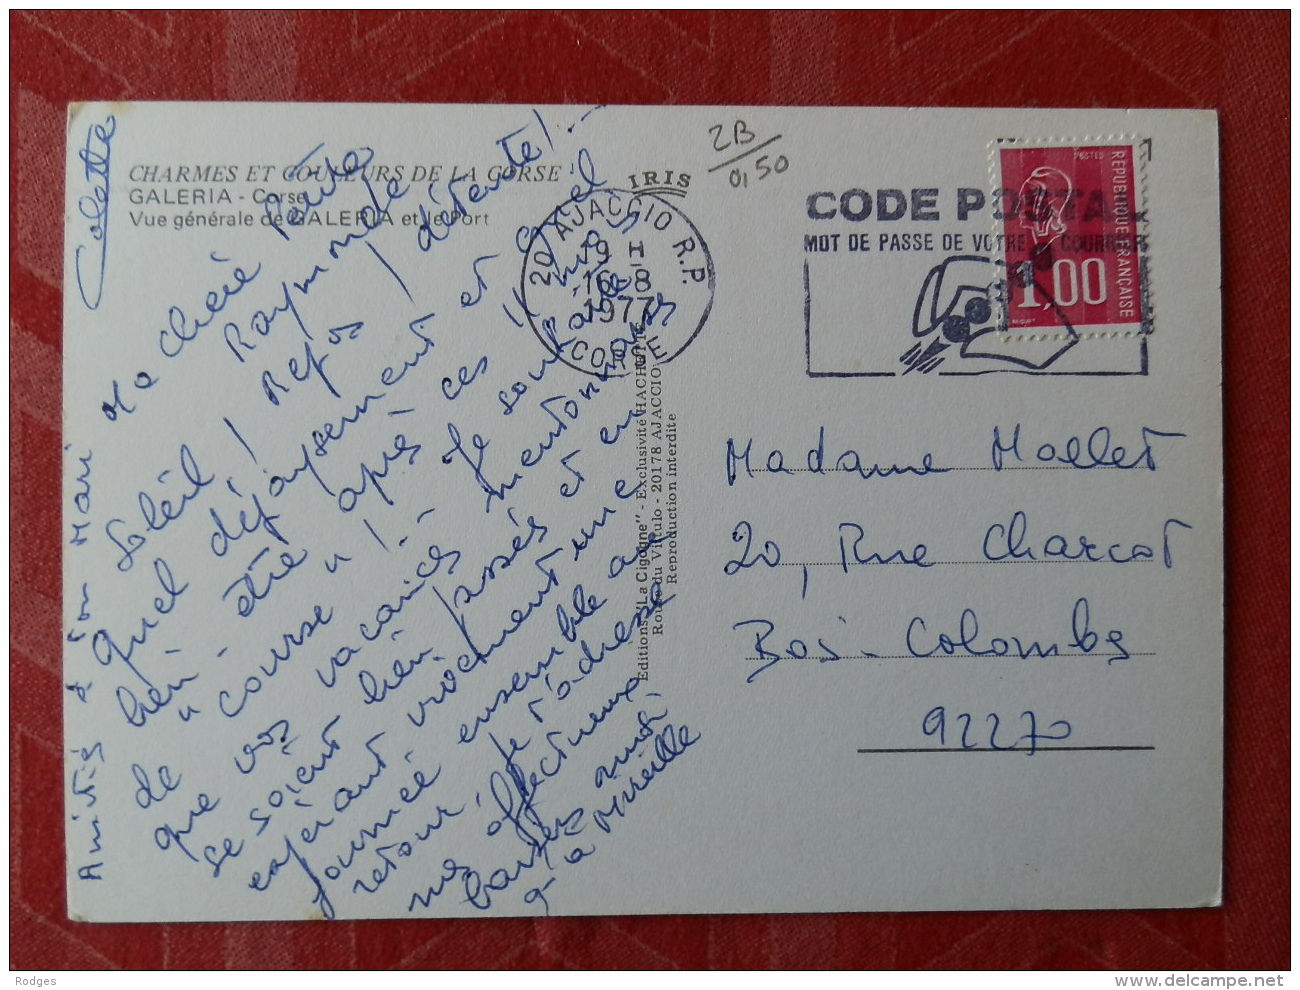 CHARMES ET COULEURS DE LA CORSE
GALERIA - Corse
Vue générale de GALERIA et le Port
IRIS
2B
0,50
20 AJACCIO R.P.
19 H
16-8
1977
CORSE
CODE POSTAL
MOT DE PASSE DE VOTRE COURRIER
POSTES
REPUBLIQUE FRANÇAISE
1,00
Ma chère petite
Raymonde
Soleil ! Repos / détente ! -
quel dépaysement et quel
bien être après ces 11 mois
de "course" ! Je souhaite
que vos vacances mentonnaises
se soient bien passés et en
espérant vivement une
journée ensemble au
retour, je t'adresse
mes affectueux
baisers ainsi
q' à Mireille
Amitiés à ton Mari
Colette
Editions "La Cigogne" - Exclusivité HACHETTE
Route du Vittulo - 20178 AJACCIO
Reproduction interdite
Madame Mallet
20, Rue Charcot
Bois-Colombes
92270
Rodges
delcampe.net